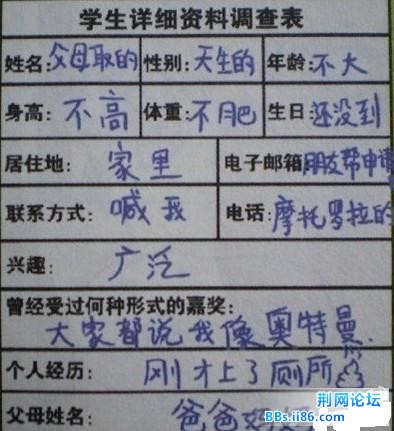 学生详细资料调查表
姓名:父母取的 性别:天生的 年龄:不大
身高:不高 体重:不肥 生日:还没到
居住地:家里 电子邮箱 朋友帮申请
联系方式:喊我 电话:摩托罗拉的
兴趣:广泛
曾经受过何种形式的嘉奖:
大家都说我像奥特曼.
个人经历:刚才上了厕所
父母姓名:爸爸
荆网论坛
BBs.ii86.com